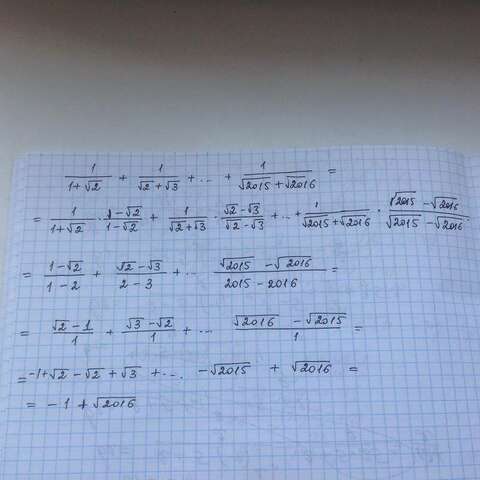 1/(1+√2) + 1/(√2+√3) + ... + 1/(√2015+√2016) =
= 1/(1+√2) · (1-√2)/(1-√2) + 1/(√2+√3) · (√2-√3)/(√2-√3) + ... + 1/(√2015+√2016) · (√2015-√2016)/(√2015-√2016)
= (1-√2)/(1-2) + (√2-√3)/(2-3) + ... (√2015-√2016)/(2015-2016) =
= (√2-1)/1 + (√3-√2)/1 + ... (√2016-√2015)/1 =
= -1+√2-√2+√3 + .... -√2015 + √2016 =
= -1+√2016